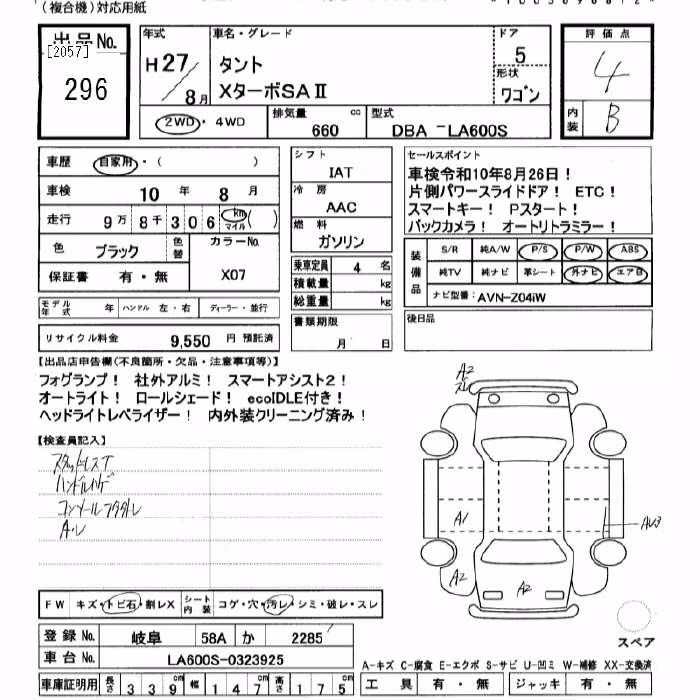 (複合機)対応用紙
出品No.
[2057]
296
年式
H27/8月
車名・グレード
タント
XターボSAⅡ
ドア
5
形状
ワゴン
評価点
4
内装
B
2WD・4WD
排気量
660 cc
型式
DBA-LA600S
車歴 自家用・( )
車検 10年 8月
走行 9万8千306 km マイル ( )
色 ブラック 色替
カラーNo. X07
保証書 有・無
モデル年式 年 ハンドル 左・右 ディーラー・並行
リサイクル料金 9,550 円 預託済
シフト
IAT
冷房
AAC
燃料
ガソリン
乗車定員 4 名
積載量 kg
総重量 kg
書類期限
月 日
セールスポイント
車検令和10年8月26日!
片側パワースライドドア! ETC!
スマートキー! Pスタート!
バックカメラ! オートリトラミラー!
装備品
S/R 純A/W P/S P/W ABS
純TV 純ナビ 革シート 外ナビ エアB
ナビ型番: AVN-Z04iW
後日品
【出品店申告欄(不良箇所・欠品・注意事項等)】
フォグランプ! 社外アルミ! スマートアシスト2!
オートライト! ロールシェード! ecoIDLE付き!
ヘッドライトレベライザー! 内外装クリーニング済み!
【検査員記入】
スタッドレスT
ハンドルハゲ
A・ル
A2
スレ
A1
A2
A2
FW キズ・トビ石・割レX
シート内装 コゲ・穴・汚レ・シミ・破レ・スレ
登録No. 岐阜 58A か 2285
車台No. LA600S-0323925
車庫証明用 長さ 339cm 幅 147cm 高さ 175cm
スペア
A-キズ C-腐食 E-エクボ S-サビ U-凹ミ W-補修 XX-交換済
工具 有・無 ジャッキ 有・無